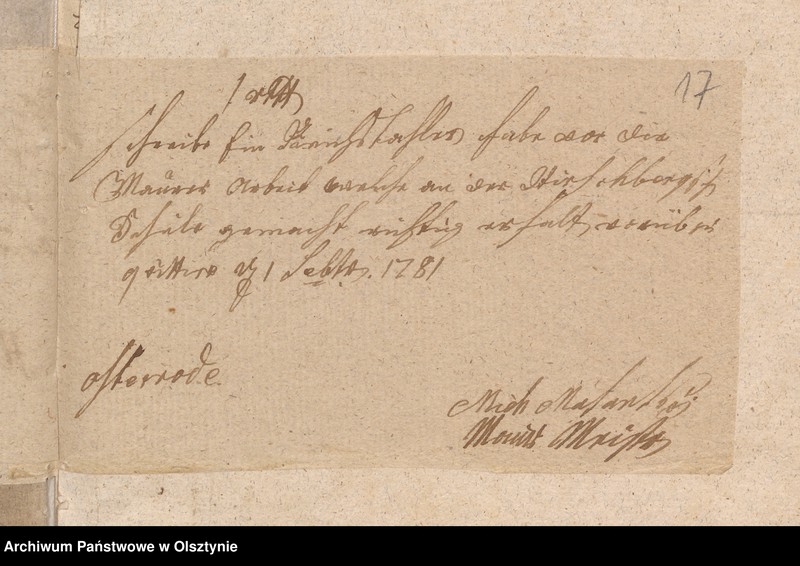 17
1 rtl
schreibe Ein Reichsthaller habe vor die
Maurer Arbeit welche an der Hirschbergsch
Schule gemacht richtig erhalt worüber
quittire 1 Sebtr. 1781
Osterrode
Mich
Maur Meister
Archiwum Państwowe w Olsztynie